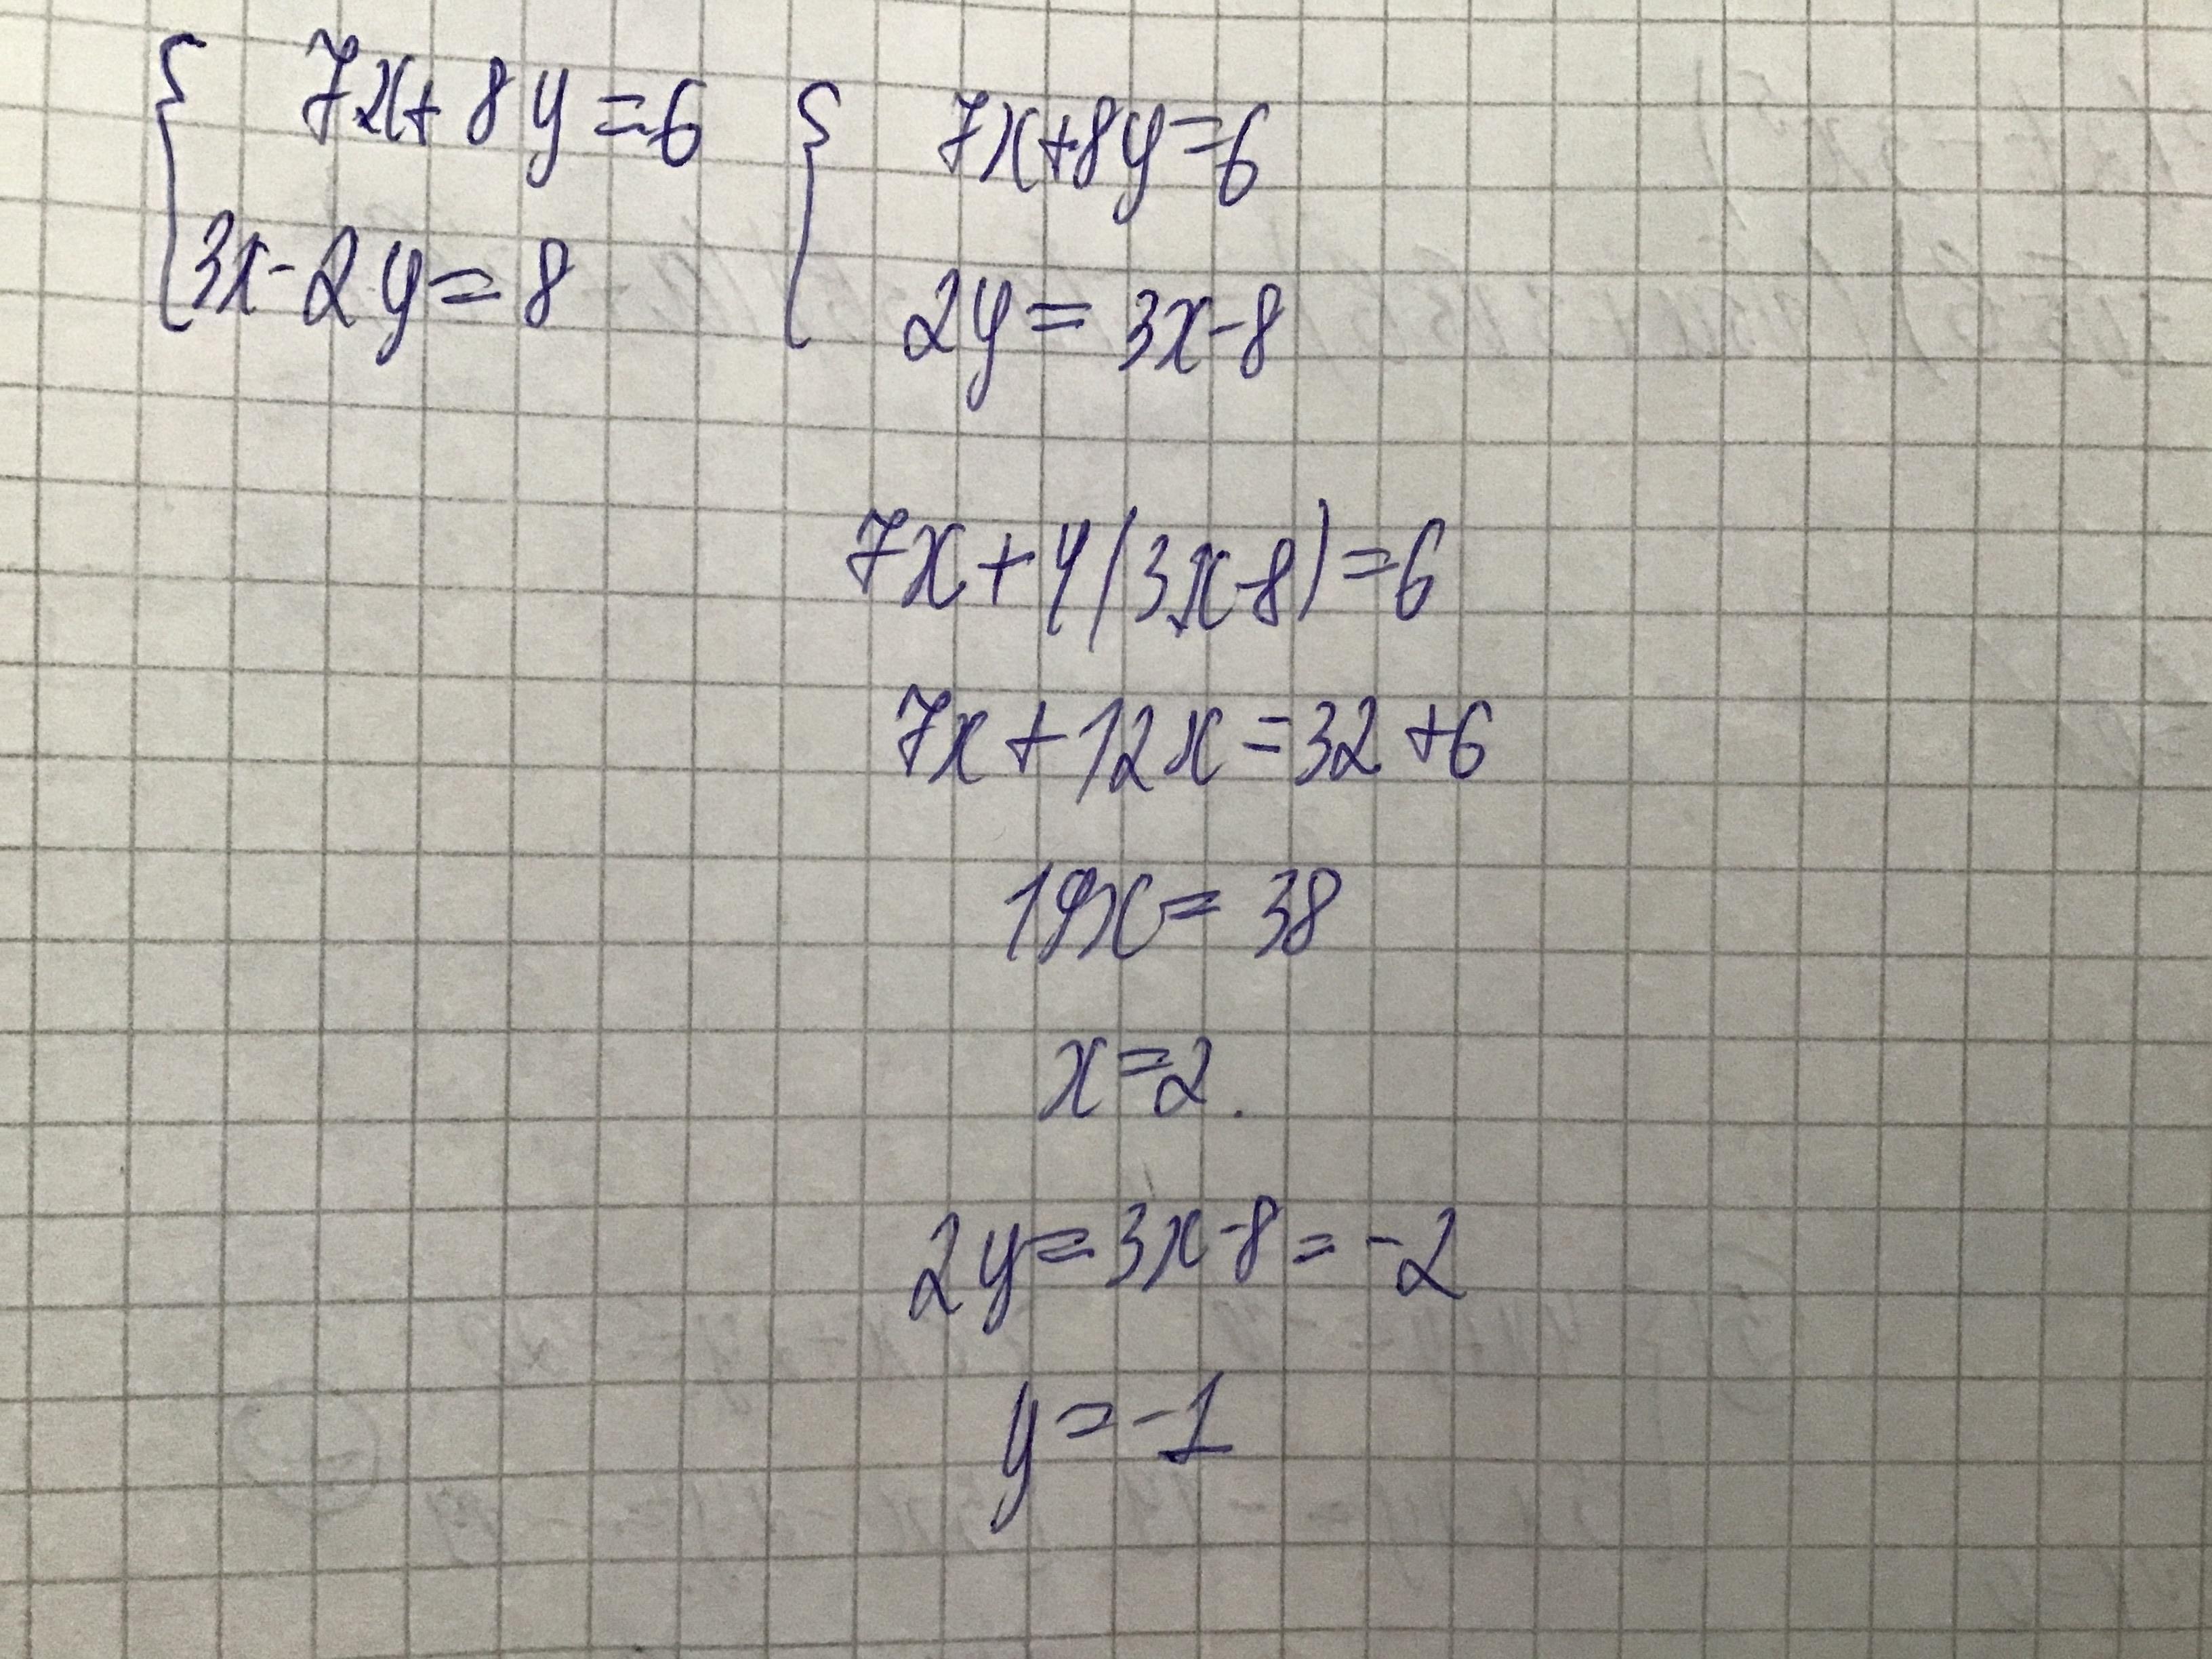 { 7x + 8y = 6 { 7x + 8y = 6
3x - 2y = 8 2y = 3x - 8
7x + 4(3x - 8) = 6
7x + 12x = 32 + 6
19x = 38
x = 2.
2y = 3x - 8 = -2
y = -1